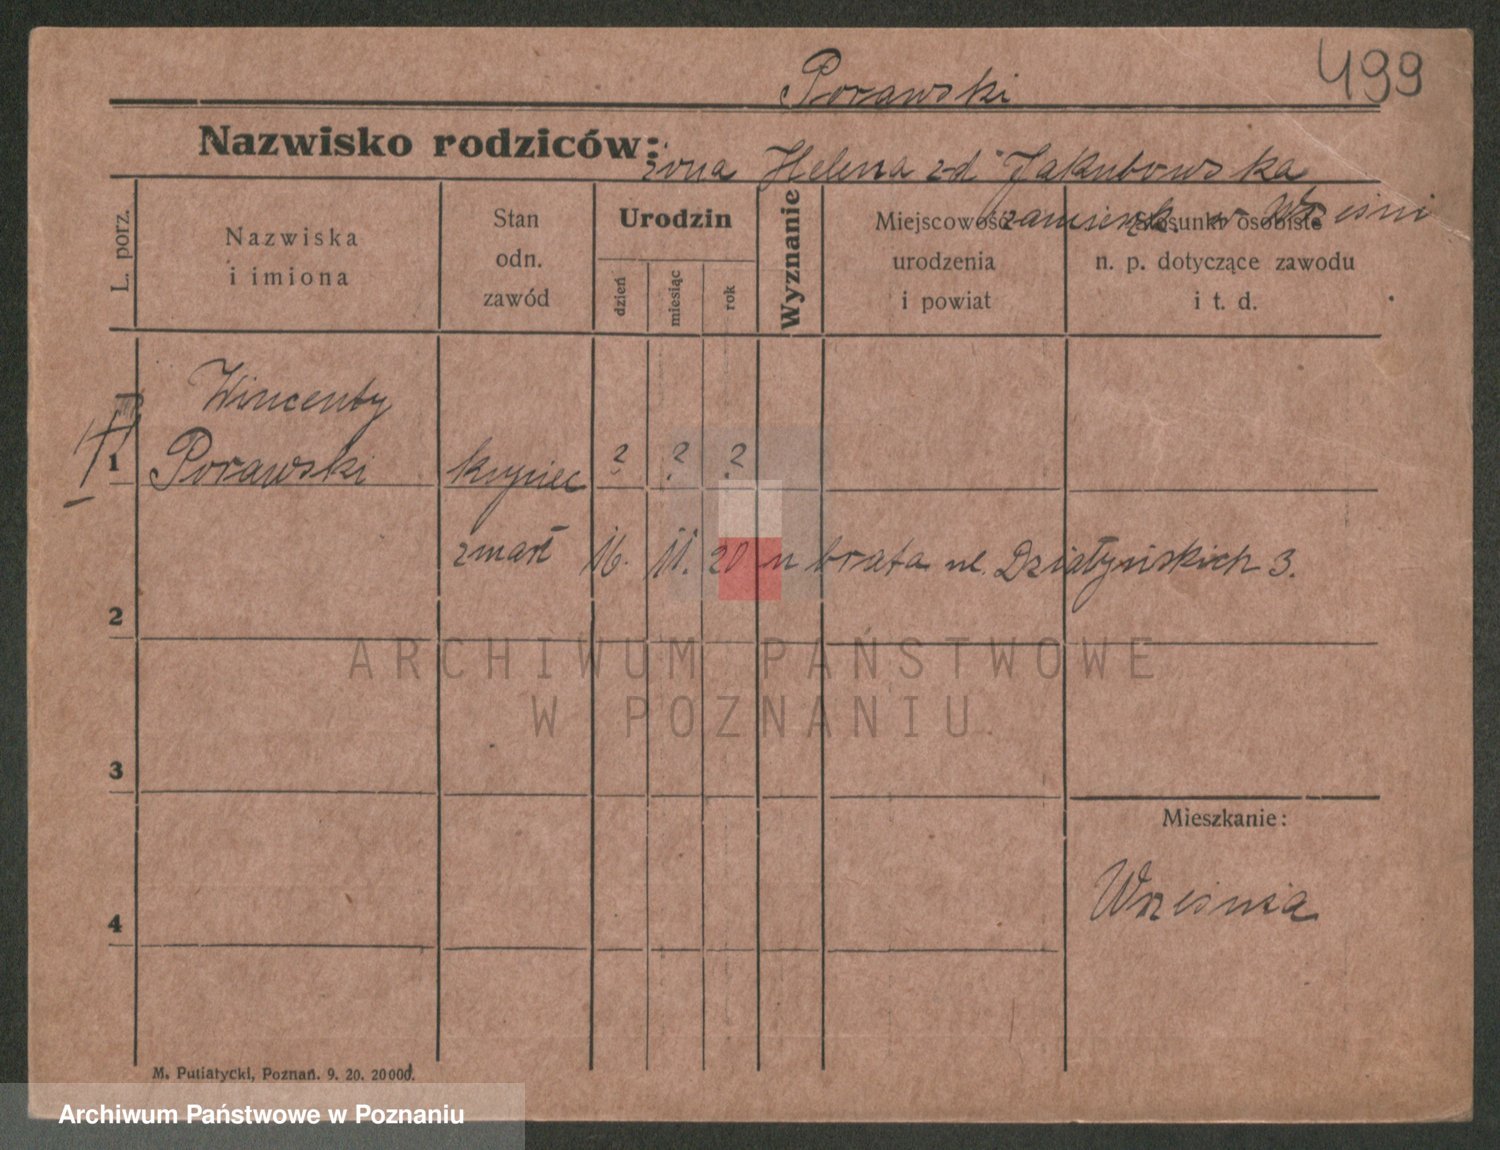 499
Porawski
Nazwisko rodziców:
żona Helena zd Jakubowska
zamieszk. w Wrześni
L. porz.
Nazwiska
i imiona
Stan
odn.
zawód
Urodzin
dzień
miesiąc
rok
Wyznanie
Miejscowość
urodzenia
i powiat
Stosunki osobiste
n. p. dotyczące zawodu
i t. d.
Wincenty
1 Porawski kupiec ? ? ?
zmarł 16. 11. 20 u brata ul. Działyńskich 3.
2
ARCHIWUM PAŃSTWOWE
W POZNANIU
3
Mieszkanie:
Września
4
M. Putiatycki, Poznań. 9. 20. 20000.
Archiwum Państwowe w Poznaniu